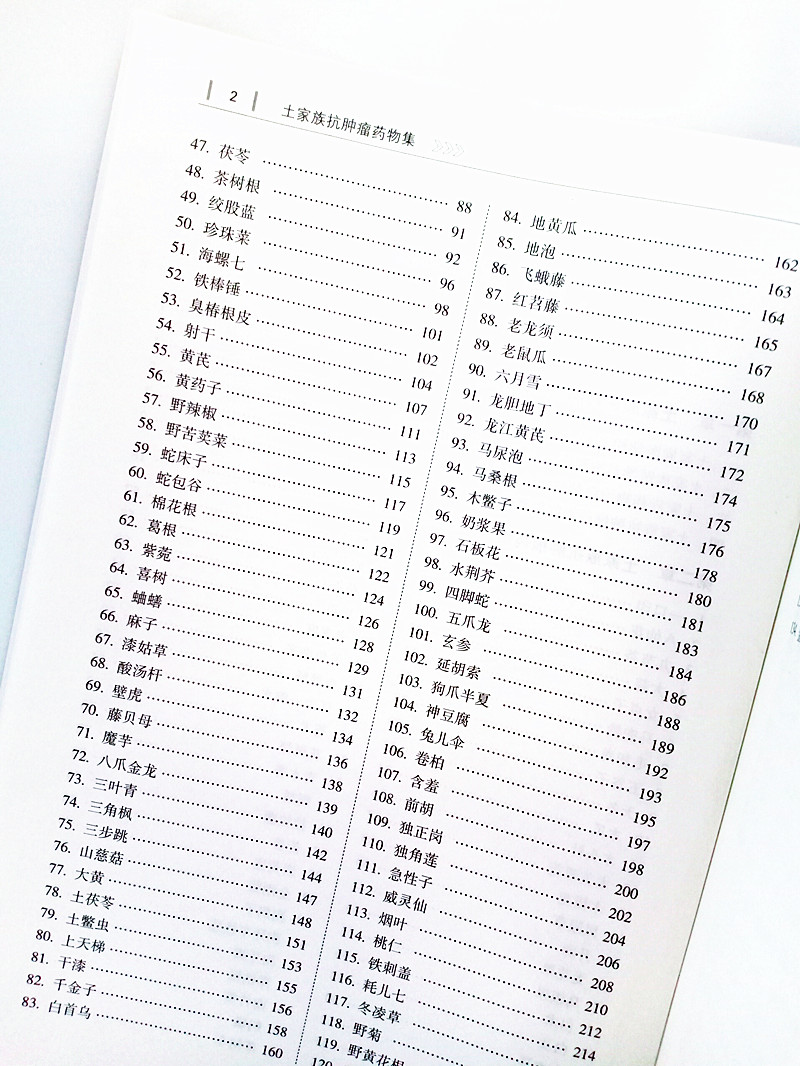 2 土家族抗肿瘤药物集
47. 茯苓 …… 88
48. 茶树根 …… 91
49. 绞股蓝 …… 92
50. 珍珠菜 …… 96
51. 海螺七 …… 98
52. 铁棒锤 …… 101
53. 臭椿根皮 …… 102
54. 射干 …… 104
55. 黄芪 …… 107
56. 黄药子 …… 111
57. 野辣椒 …… 113
58. 野苦荬菜 …… 115
59. 蛇床子 …… 117
60. 蛇包谷 …… 119
61. 棉花根 …… 121
62. 葛根 …… 122
63. 紫菀 …… 124
64. 喜树 …… 126
65. 蛐蟮 …… 128
66. 麻子 …… 129
67. 漆姑草 …… 131
68. 酸汤杆 …… 132
69. 壁虎 …… 134
70. 藤贝母 …… 136
71. 魔芋 …… 138
72. 八爪金龙 …… 139
73. 三叶青 …… 140
74. 三角枫 …… 142
75. 三步跳 …… 144
76. 山慈菇 …… 147
77. 大黄 …… 148
78. 土茯苓 …… 151
79. 土鳖虫 …… 153
80. 上天梯 …… 155
81. 干漆 …… 156
82. 千金子 …… 158
83. 白首乌 …… 160
84. 地黄瓜 …… 162
85. 地泡 …… 163
86. 飞蛾藤 …… 164
87. 红苕藤 …… 165
88. 老龙须 …… 167
89. 老鼠瓜 …… 168
90. 六月雪 …… 170
91. 龙胆地丁 …… 171
92. 龙江黄芪 …… 172
93. 马尿泡 …… 174
94. 马桑根 …… 175
95. 木鳖子 …… 176
96. 奶浆果 …… 178
97. 石板花 …… 180
98. 水荆芥 …… 181
99. 四脚蛇 …… 183
100. 五爪龙 …… 184
101. 玄参 …… 186
102. 延胡索 …… 188
103. 狗爪半夏 …… 189
104. 神豆腐 …… 192
105. 兔儿伞 …… 193
106. 卷柏 …… 195
107. 含羞 …… 197
108. 前胡 …… 198
109. 独正岗 …… 200
110. 独角莲 …… 202
111. 急性子 …… 204
112. 威灵仙 …… 206
113. 烟叶 …… 208
114. 桃仁 …… 210
115. 铁刺盖 …… 212
116. 耗儿七 …… 214
117. 冬凌草 ……
118. 野菊 ……
119. 野黄花根
120